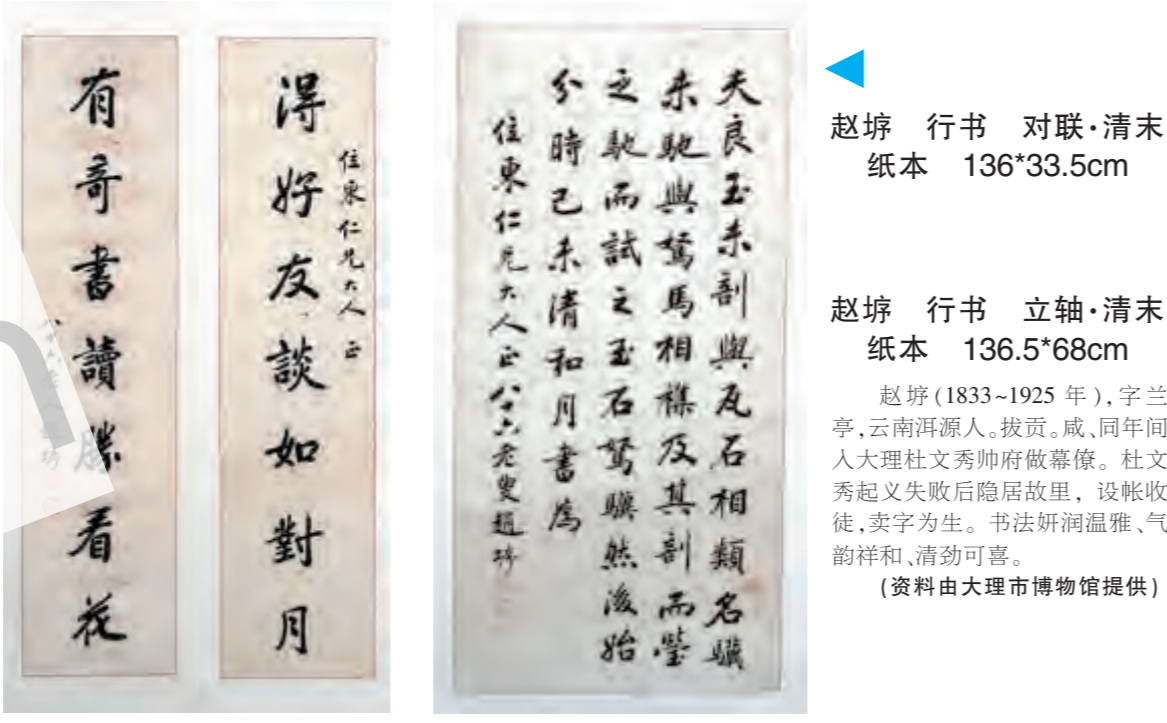 得好友談如對月
住東仁兄大人 正
有奇書讀勝看花
夫良玉未剖與瓦石相類名驥
未馳與駑馬相襍及其剖而瑩
之馳而試之玉石駑驥然後始
分時己未清和月書為
住東仁兄大人正八十六老叟趙垿
赵垿 行书 对联·清末
纸本 136*33.5cm
赵垿 行书 立轴·清末
纸本 136.5*68cm
赵垿(1833~1925 年),字兰
亭,云南洱源人。拔贡。咸、同年间
入大理杜文秀帅府做幕僚。杜文
秀起义失败后隐居故里，设帐收
徒,卖字为生。书法妍润温雅、气
韵祥和、清劲可喜。
(资料由大理市博物馆提供)